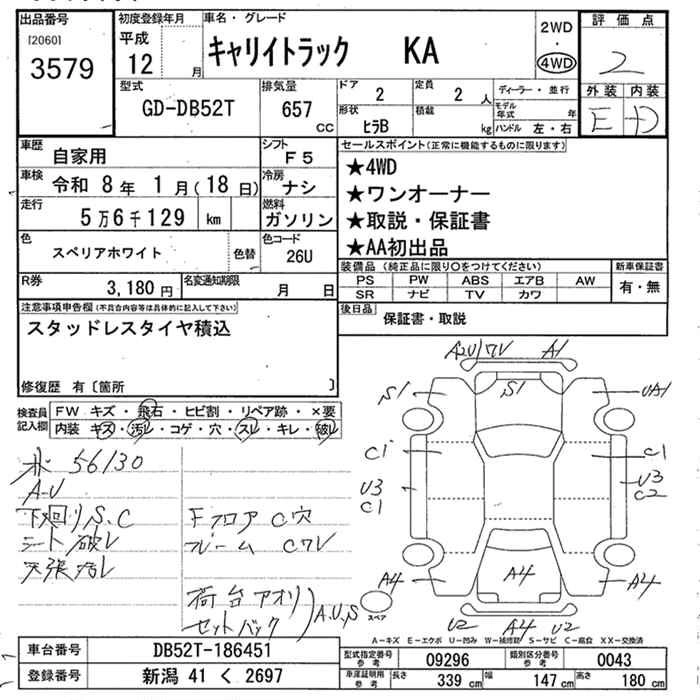 出品番号
[2060]
3579
初度登録年月
平成
12 月
車名・グレード
キャリイトラック KA
2WD
・
4WD
評価点
2
外装 内装
E +D
型式
GD-DB52T
排気量
657 CC
ドア
2
定員
2 人
形状
ヒラB
積載
kg
ディーラー・並行
モデル年式 年
ハンドル 左・右
車歴
自家用
シフト
F5
車検
令和 8年 1月(18日)
冷房
ナシ
走行
5万6千129 km
燃料
ガソリン
色
スペリアホワイト
色替
色コード
26U
R券
3,180円
名変通知期限
月 日
セールスポイント(正常に機能するものに限ります)
★4WD
★ワンオーナー
★取説・保証書
★AA初出品
装備品(純正品に限り○をつけてください)
PS PW ABS エアB AW
SR ナビ TV カワ
新車保証書
有・無
後日品
保証書・取説
注意事項申告欄(不具合内容等は具体的に記入して下さい)
スタッドレスタイヤ積込
修復歴 有〔箇所 〕
検査員記入欄
FW キズ・飛石・ヒビ割・リペア跡・×要
内装 キズ・汚レ・コゲ・穴・スレ・キレ・破レ
56130
A-U
下廻りS.C
シート破レ
天張汚レ
Fフロア C穴
フレーム C
荷台アオリ
セットバック
A.U.S
A2U1 A1
S1 S1 UA1
C1 C1
U3 C1
U3 C2
A4 A4 A4
U2 A4 U2
スペア
A-キズ E-エクボ U-凹み W-補修跡 S-サビ C-腐食 XX-交換済
車台番号
DB52T-186451
登録番号
新潟 41 く 2697
型式指定番号 参考
09296
類別区分番号 参考
0043
車庫証明用 参考
長さ 339 cm
幅 147 cm
高さ 180 cm